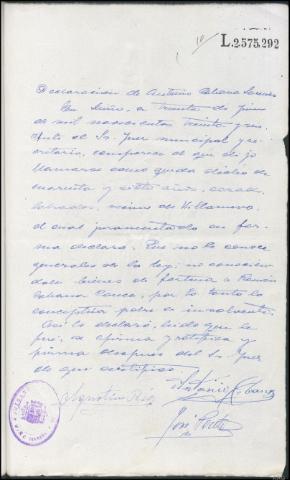 L.2.575.292
10
Declaración de Antonio Cabana
En Miño, a treinta de Junio
de mil novecientos treinta y
ante el Sr. Juez municipal y
comparece el que dijo
llamarse como queda dicho de
cuarenta y siete años, casado
labrador, vecino de Villanueva
el cual juramentado en for-
ma declara: Que no le conoce
generales de la ley; no conocien-
dole bienes de fortuna a Ramón
Cabana por lo tanto lo
conceptua pobre e insolvente.
Asi lo declaró, leido que le
fué, se afirma y ratifica y
firma despues del Sr. Juez
de que certifico.
Agustin
Antonio Cabana
José